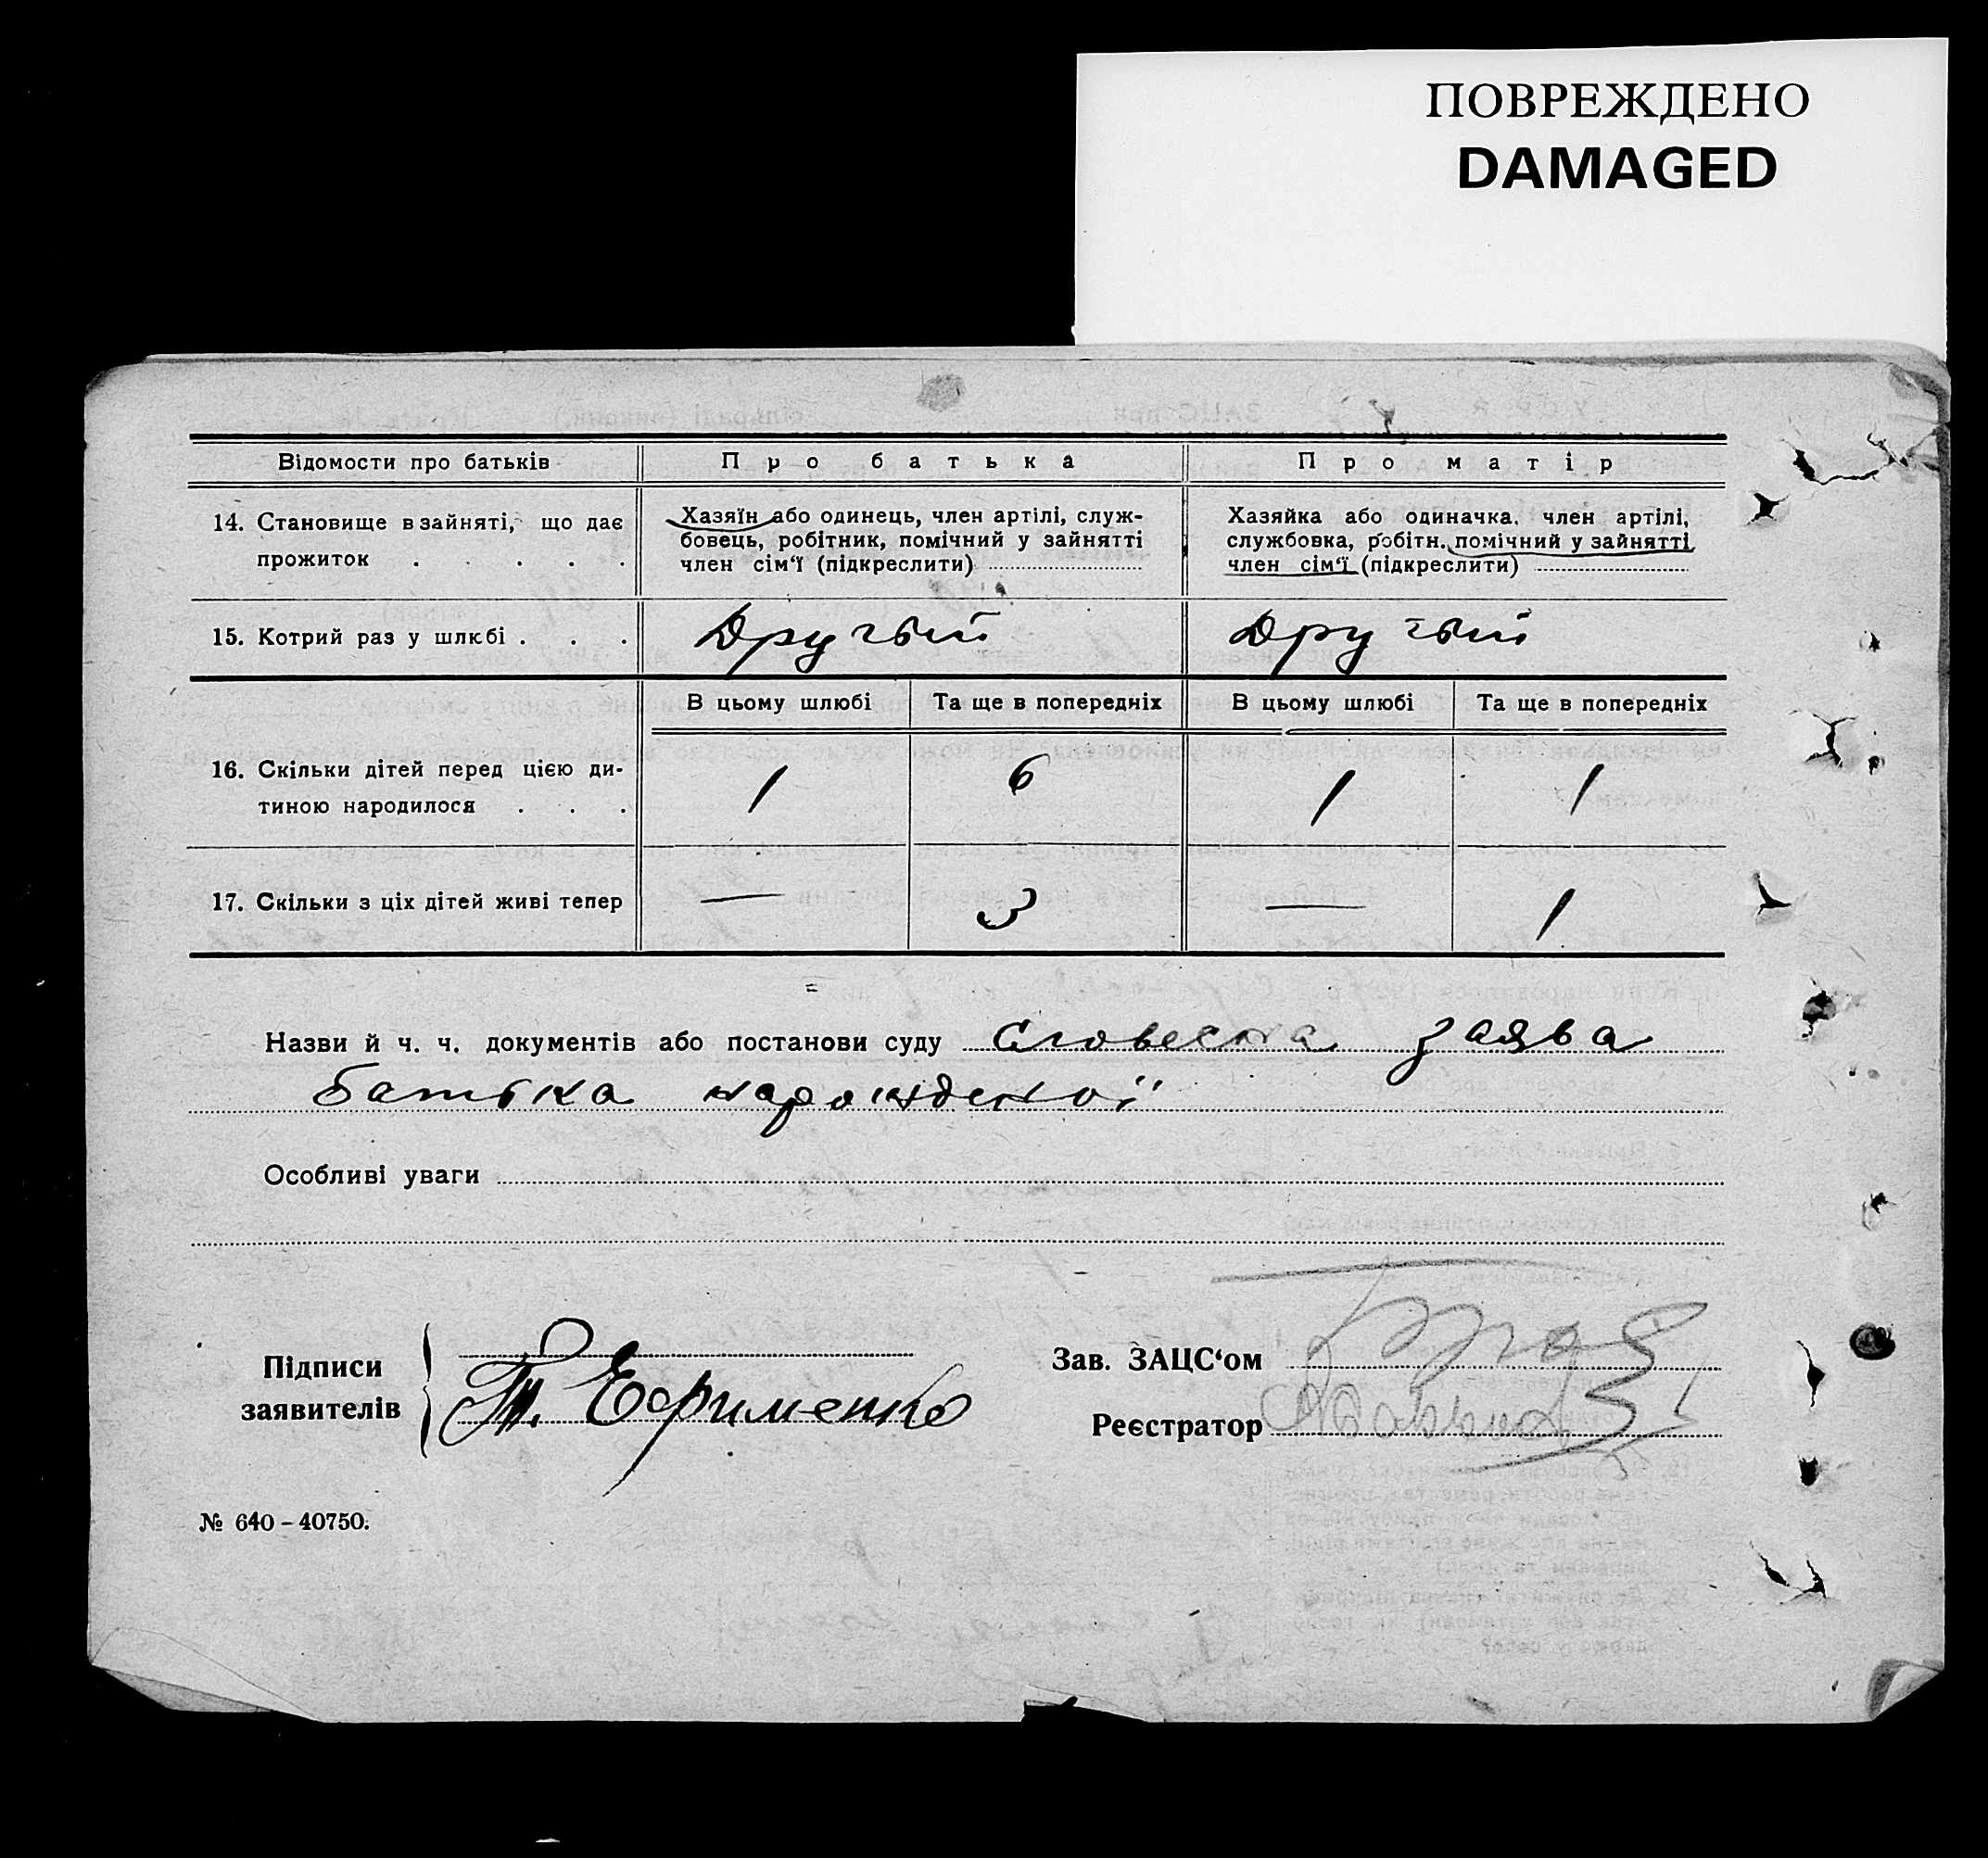 ПОВРЕЖДЕНО
DAMAGED
Відомости про батьків
Про батька
Про матір
14. Становище в зайняті, що дає
прожиток . . . . .
Хазяїн або одинець, член артілі, служ-
бовець, робітник, помічний у зайнятті
член сім'ї (підкреслити)
Хазяйка або одиначка, член артілі,
службовка, робітн. помічний у зайнятті
член сім'ї (підкреслити)
15. Котрий раз у шлюбі . . .
Другый
Другый
В цьому шлюбі
Та ще в попередніх
В цьому шлюбі
Та ще в попередніх
16. Скільки дітей перед цією ди-
тиною народилося . . .
1
6
1
1
17. Скільки з ціх дітей живі тепер
—
3
—
1
Назви й ч. ч. документів або постанови суду словесна заява
батька нарожденої
Особливі уваги
Підписи
заявителів
Т. Ефименко
Зав. ЗАЦС'ом
Реєстратор
№ 640 – 40750.